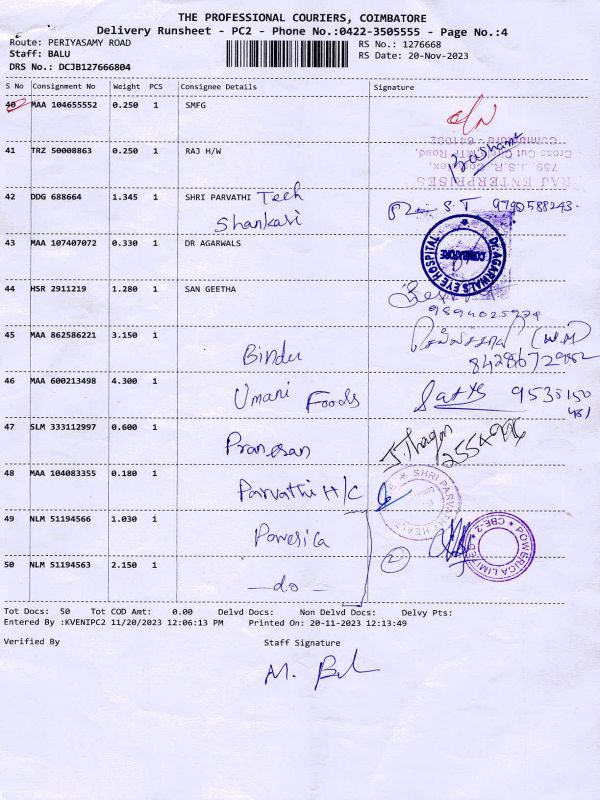 THE PROFESSIONAL COURIERS, COIMBATORE
Delivery Runsheet - PC2 - Phone No.:0422-3505555 - Page No.:4
Route: PERIYASAMY ROAD RS No.: 1276668
Staff: BALU RS Date: 20-Nov-2023
DRS No.: DCJB127666804
S No Consignment No Weight PCS Consignee Details Signature
40 MAA 104655552 0.250 1 SMFG
41 TRZ 50008863 0.250 1 RAJ H/W
RAJ ENTERPRISES
759, J.S.R. Complex,
Cross Cut Road,
Coimbatore - 641002
42 DDG 688664 1.345 1 SHRI PARVATHI Tech
Shankari
S.T
43 MAA 107407072 0.330 1 DR AGARWALS
Dr.AGARWAL'S EYE HOSPITAL
COIMBATORE
44 HSR 2911219 1.280 1 SAN GEETHA
9894025974
45 MAA 862586221 3.150 1 Bindu
46 MAA 600213498 4.300 1 Umani Foods
9538150
481
47 SLM 333112997 0.600 1 Pranesan
J.Thagam
48 MAA 104083355 0.180 1 Parvathi H/C
SHRI PARVATHI HEALTH
49 NLM 51194566 1.030 1 Powerica
POWERICA LIMITED
CBE-2
50 NLM 51194563 2.150 1 -do-
2
Tot Docs: 50 Tot COD Amt: 0.00 Delvd Docs: Non Delvd Docs: Delvy Pts:
Entered By :KVENIPC2 11/20/2023 12:06:13 PM Printed On: 20-11-2023 12:13:49
Verified By Staff Signature
M. Bal